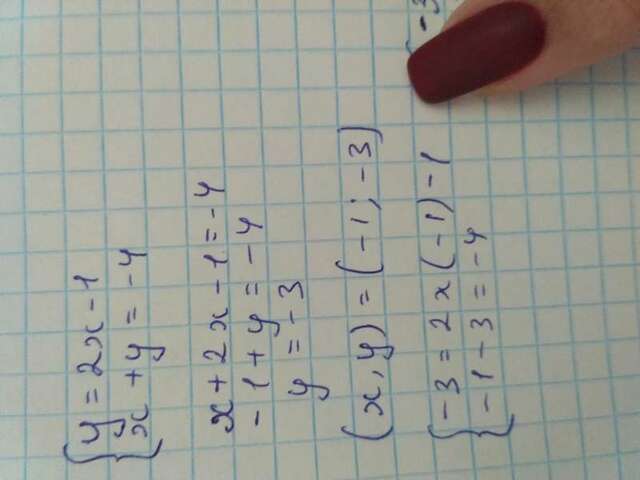 y = 2x - 1
x + y = -4
x + 2x - 1 = -4
-1 + y = -4
y = -3
(x, y) = (-1; -3)
-3 = 2x(-1) - 1
-1 - 3 = -4
-3